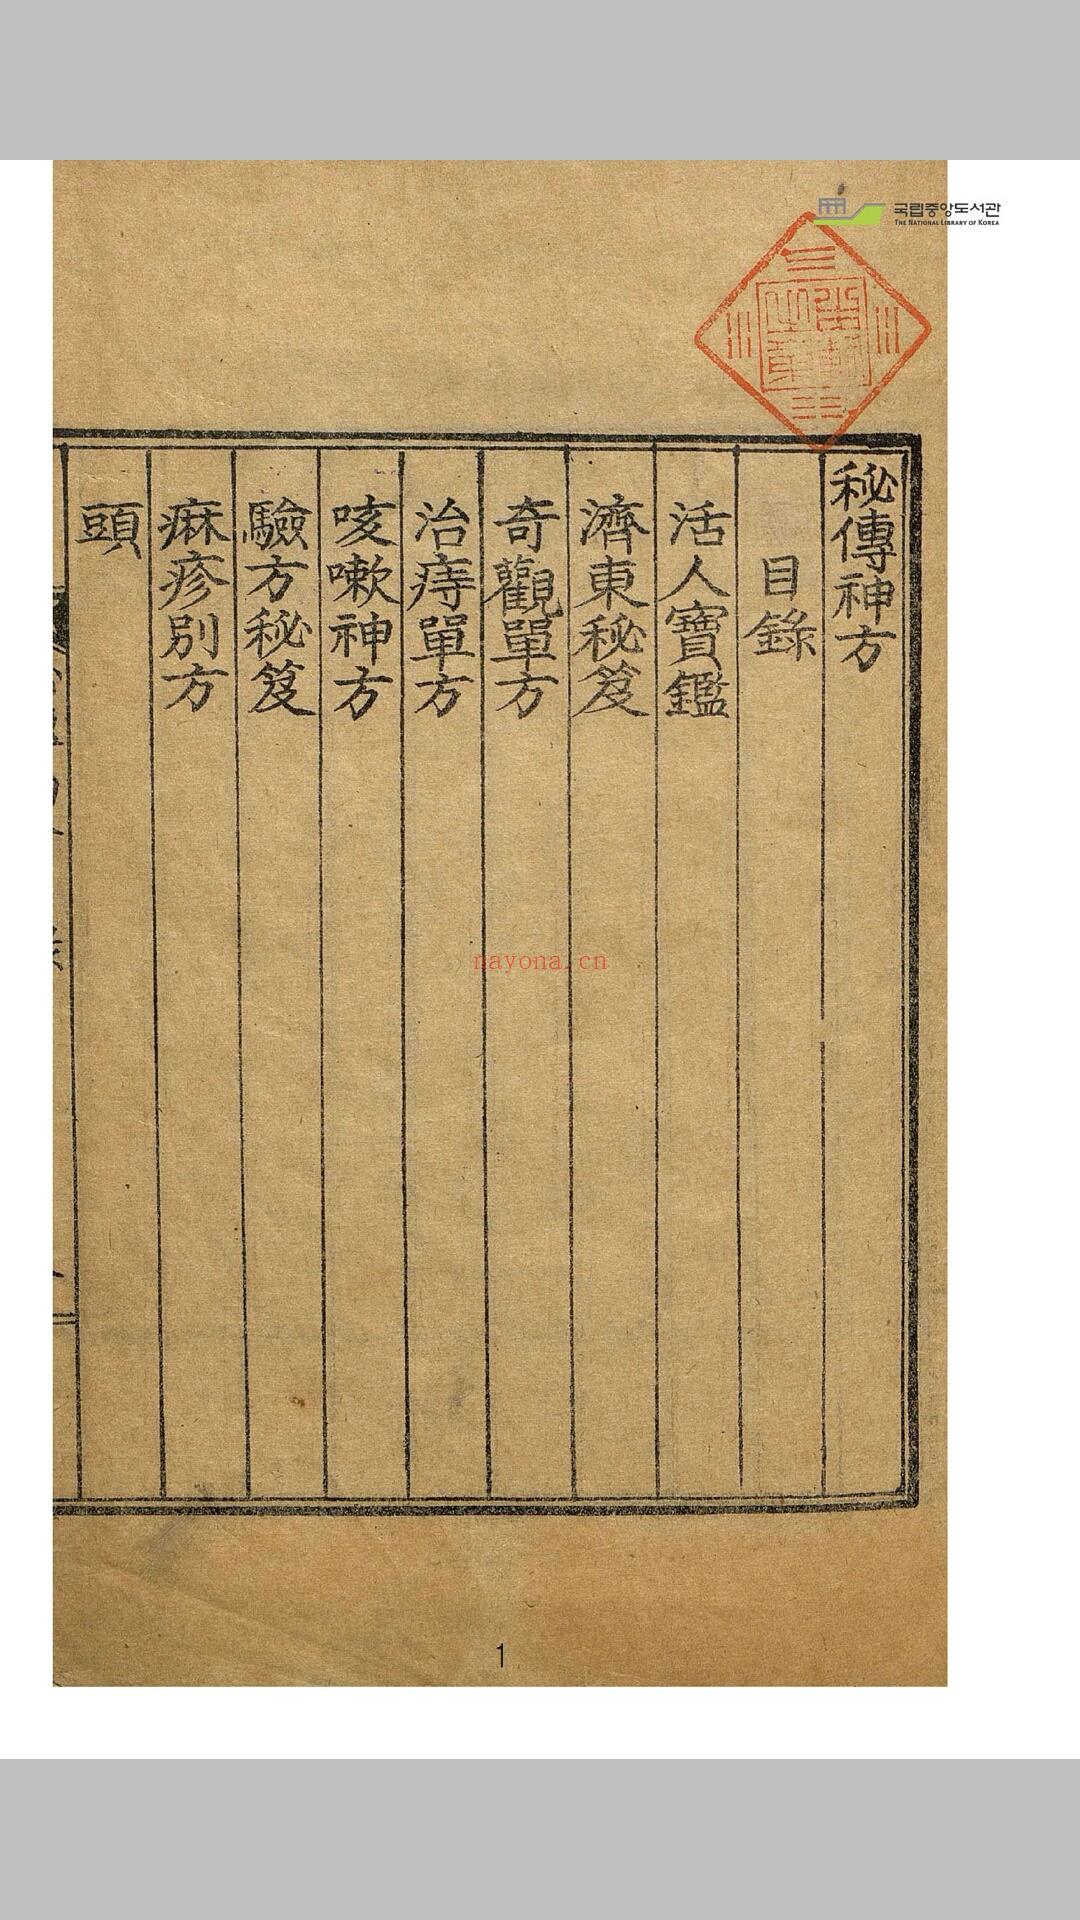 국립중앙도서관
THE NATIONAL LIBRARY OF KOREA
秘傳神方
目錄
活人寶鑑
濟東秘笈
奇觀單方
治痔單方
咳嗽神方
驗方秘笈
痳疹別方
頭
nayona.cn
1